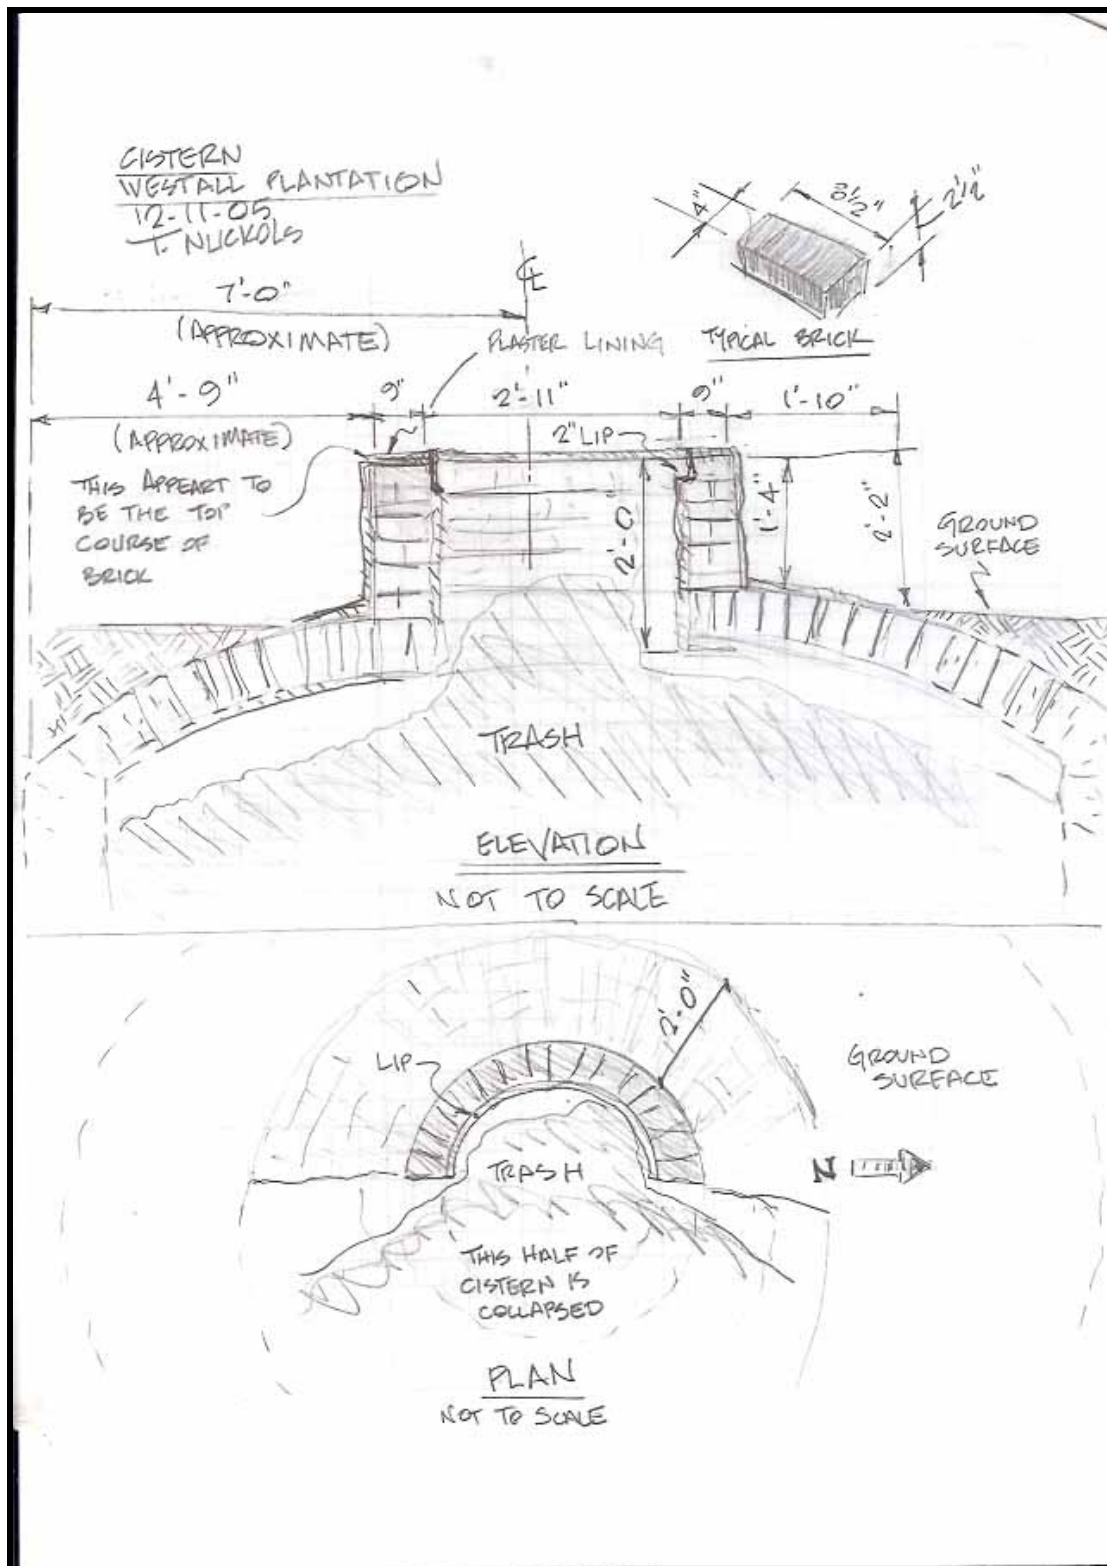 CISTERN
WESTALL PLANTATION
12-11-05
T. NUCKOLS
4"
8½"
2½"
TYPICAL BRICK
7'-0"
(APPROXIMATE)
℄
PLASTER LINING
4'-9"
(APPROXIMATE)
9"
2'-11"
9"
1'-10"
2" LIP
THIS APPEART TO
BE THE TOP
COURSE OF
BRICK
2'-0"
1'-4"
2'-2"
GROUND
SURFACE
TRASH
ELEVATION
NOT TO SCALE
2'-0"
LIP
GROUND
SURFACE
TRASH
N
THIS HALF OF
CISTERN IS
COLLAPSED
PLAN
NOT TO SCALE